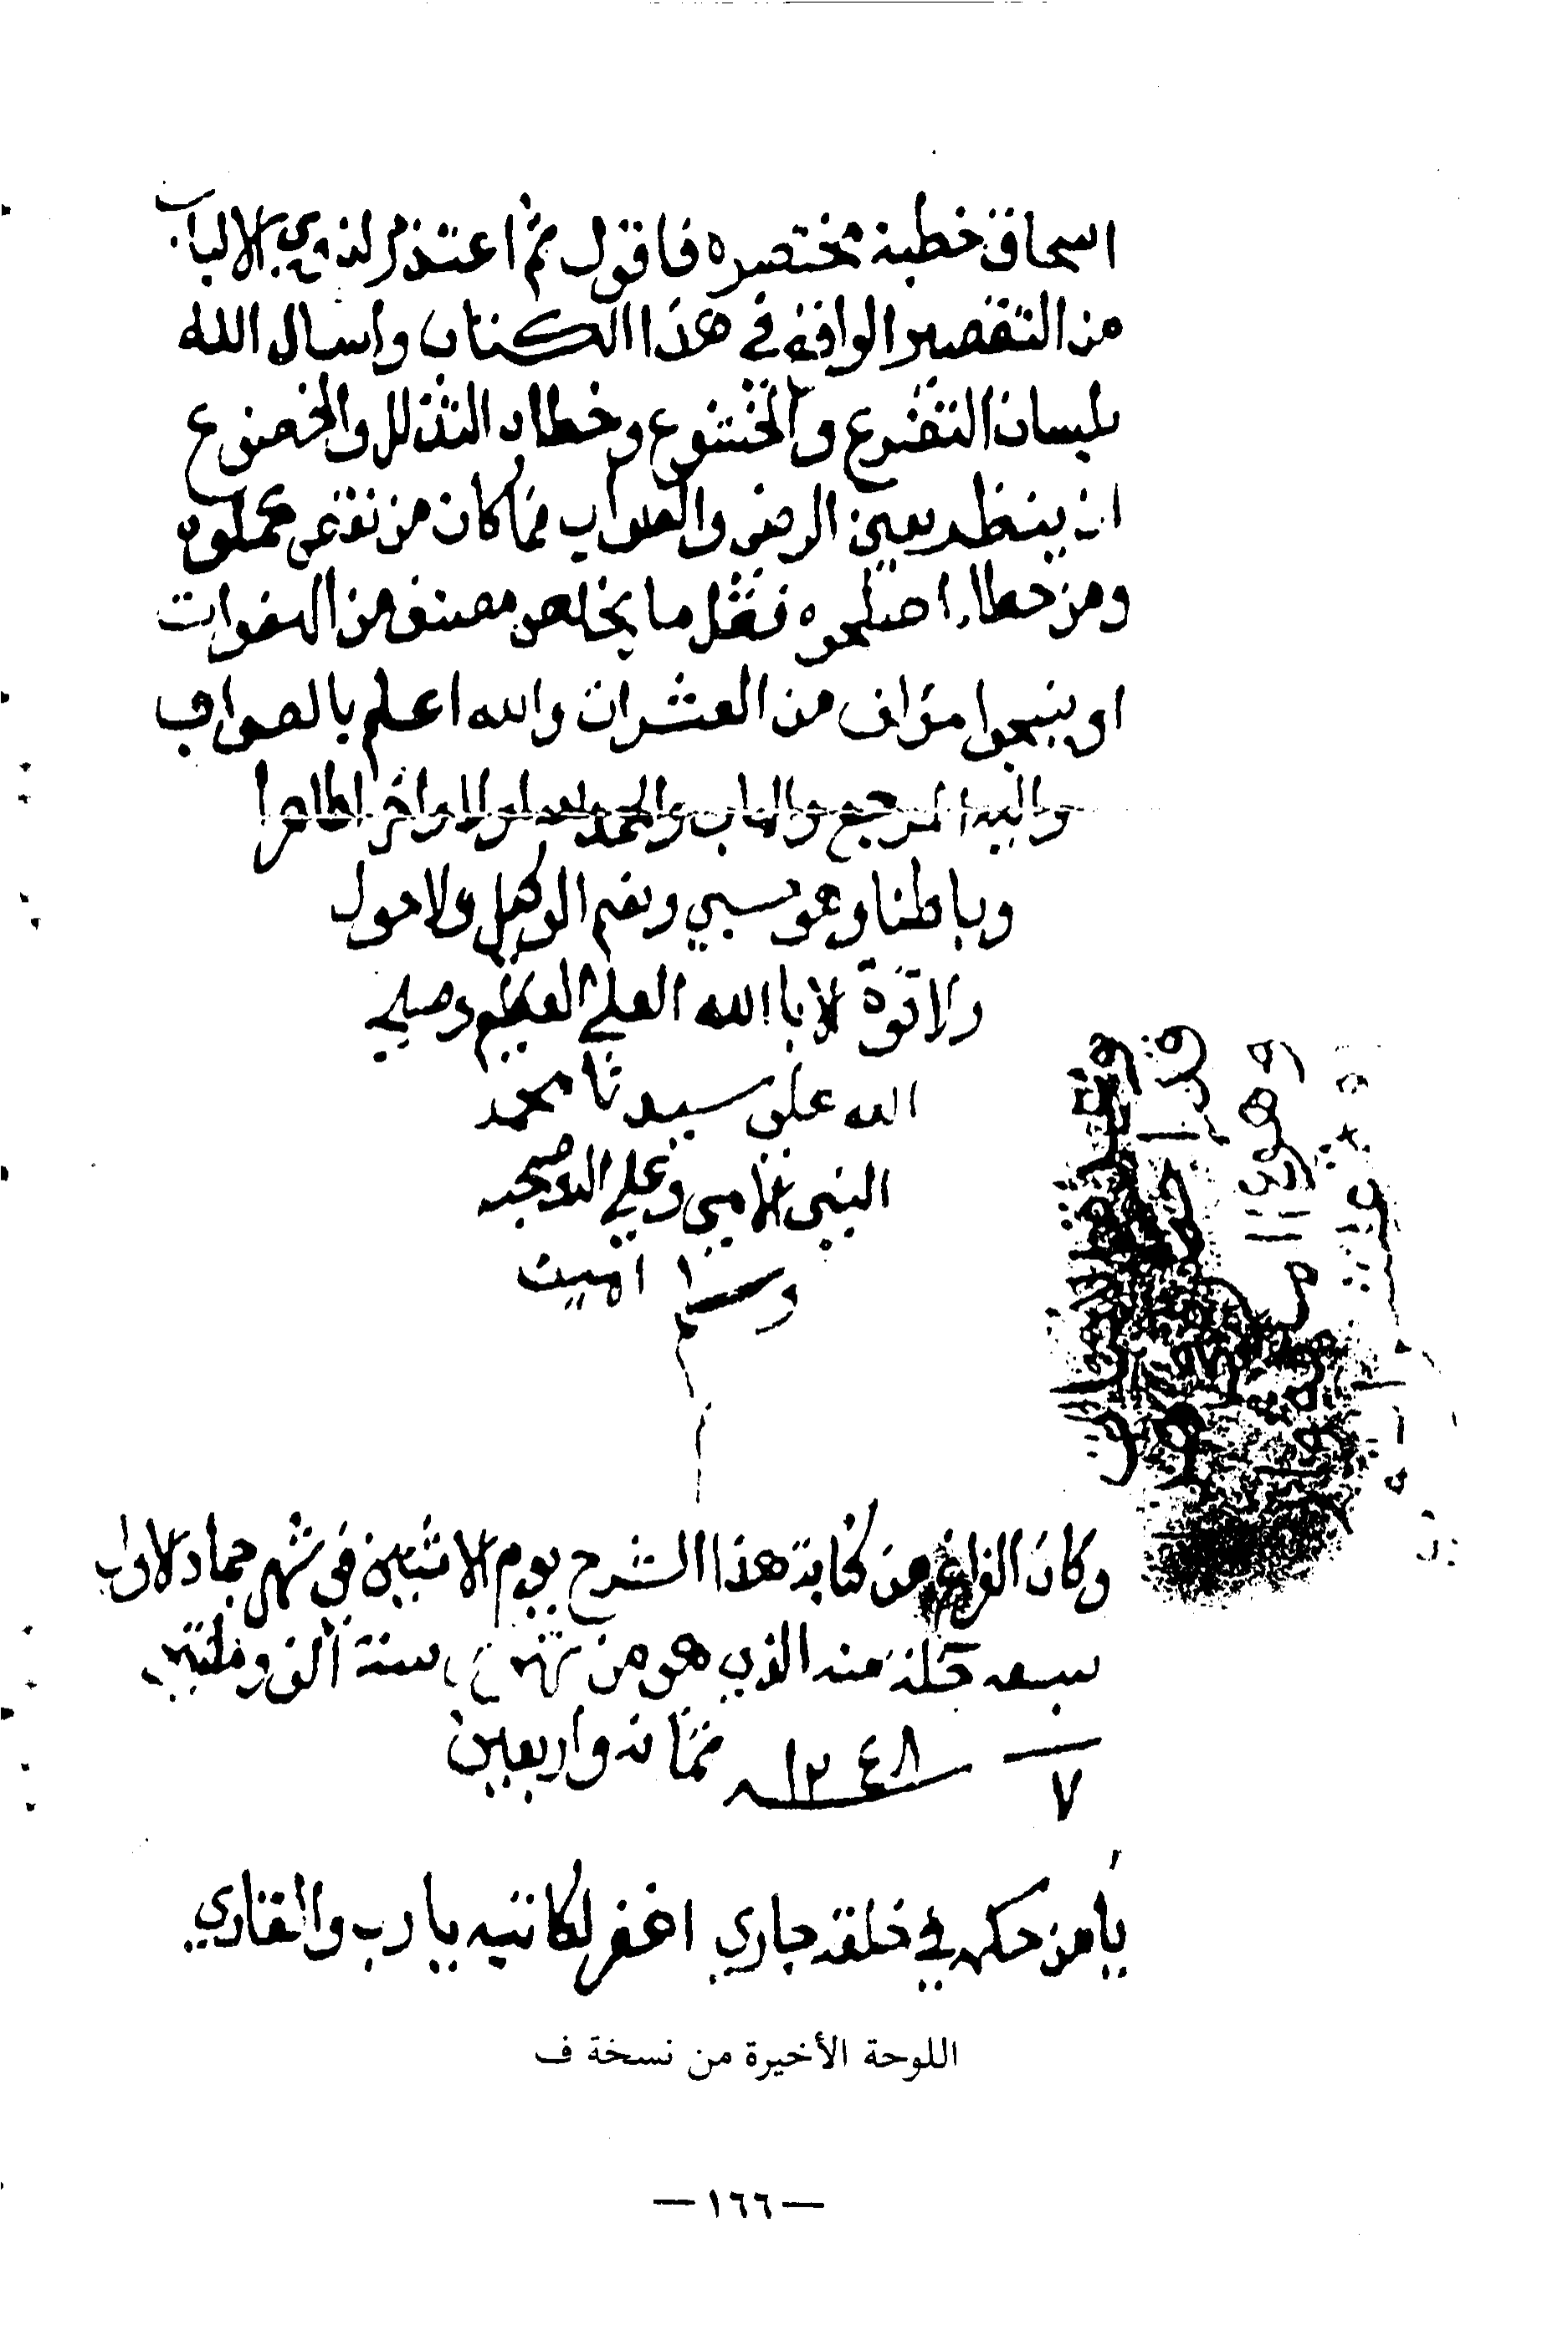 اسحاق خطبة مختصره فاقول ثم اعتذر لذوي الالباب
من التقصير الواقع في هذا الكتاب واسال الله
بلسان التضرع والخشوع وخطاب التذلل والخضوع
ان ينظر بعين الرضى والصواب فما كان من نقص كملوه
ومن خطاء اصلحوه فقل ما يخلص مصنف من الهفوات
او ينجوا مؤلف من العثرات والله اعلم بالصواب
واليه المرجع والماب والحمد لله اولا واخرا ظاهرا
وباطنا وهو حسبي ونعم الوكيل ولا حول
ولا قوة الا باالله العلي العظيم وصلى
الله على سيدنا محمد
النبي الامي وعلى اله وصحبه
وسلم امين
وكان الفراغ من كتابة هذا الشرح يوم الاثنين في شهر جماد الاول
سبعه خلة منه الذي هو من سنة ألف ومأتين
٧ ١٢٤٨ ثمانه واربعين
يا من حكمه في خلقه جاري اغفر لكاتبه يا رب والقاري
اللوحة الأخيرة من نسخة ف
— ١٦٦ —